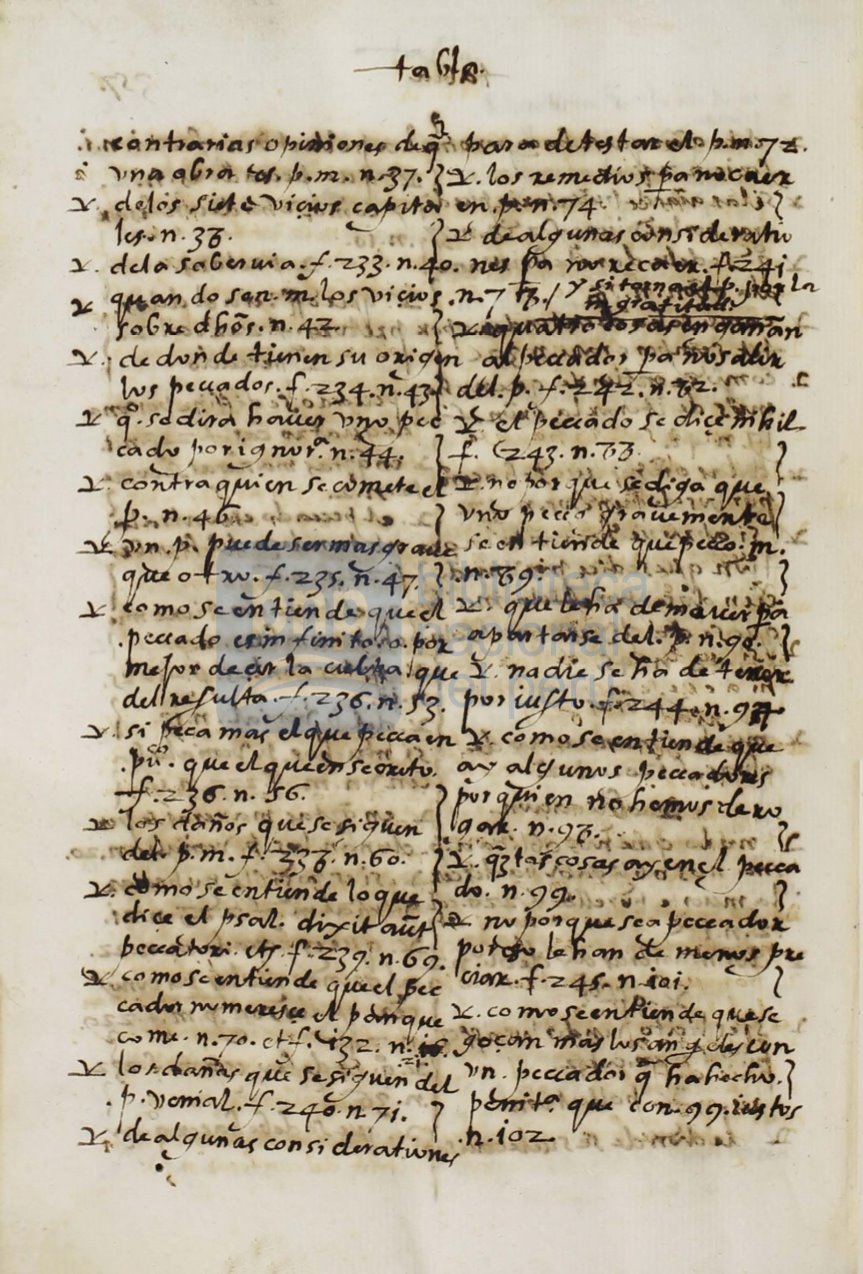 tabla.
contrarias opiniones de q̃
vna obra es. p. m. n. 37.
V. delos siete vicios capita
les. n. 38.
V. dela soberuia. f. 233. n. 40.
V. quando son. m. los vicios
sobre dhõs. n. 42.
V. de donde tienen su origen
los peccados. f. 234. n. 43.
V. qº. se dira hauer vno pec
cado por ignorª. n. 44.
V. contra quien se comete el
p. n. 46.
V. vn. p. puede ser mas graue
que otro. f. 235. n. 47.
V. como se entiende que el
peccado es infinito. o. por
mejor deçir la culpa que
del resulta. f. 236. n. 53.
V. si peca mas el que pecca en
puᶜᵒ. que el que en secreto.
f. 236. n. 56.
V. los daños que se siguen
del. p. m. f. 238. n. 60.
V. como se entiende lo que
dice el psal. dixit aũt
peccatori. etc. f. 239. n. 69.
V. como se entiende que el pec
cador no merece el pan que
come. n. 70. et f. 132. n.
V. los daños que se siguen del
p. venial. f. 240. n. 71.
V. de algunas considerationes
para detestar el. p. m. 72.
V. los remedios pa no caer
en. p. n. 74.
V. de algunas consideratio
nes pa no recaer. f. 241
n. 78. / y si torna el p. por la
ingratitud.
V. quatro cosas engañan
al peccador pa no salir
del. p. f. 242. n. 82.
V. el peccado se dice nihil
f. 243. n. 88.
V. no por que se diga que
vno pecco grauemente
se entiende que pecco. m.
n. 89.
V. que le ha de mouer pa
apartarse del. p. n. 90.
V. nadie se ha de tener
por iusto. f. 244. n. 94
V. como se entiende que
ay algunos peccadores
por quien no hemos de ro
gar. n. 98.
V. q̃tas cosas ay en el pecca
do. n. 99.
V. no por que sea peccador
le han de menos pre
ciar. f. 245. n. 101.
V. como se entiende que se
goçan mas los angeles con
vn. peccador q̃ ha hecho.
penitª. que con. 99. iustos
n. 102.